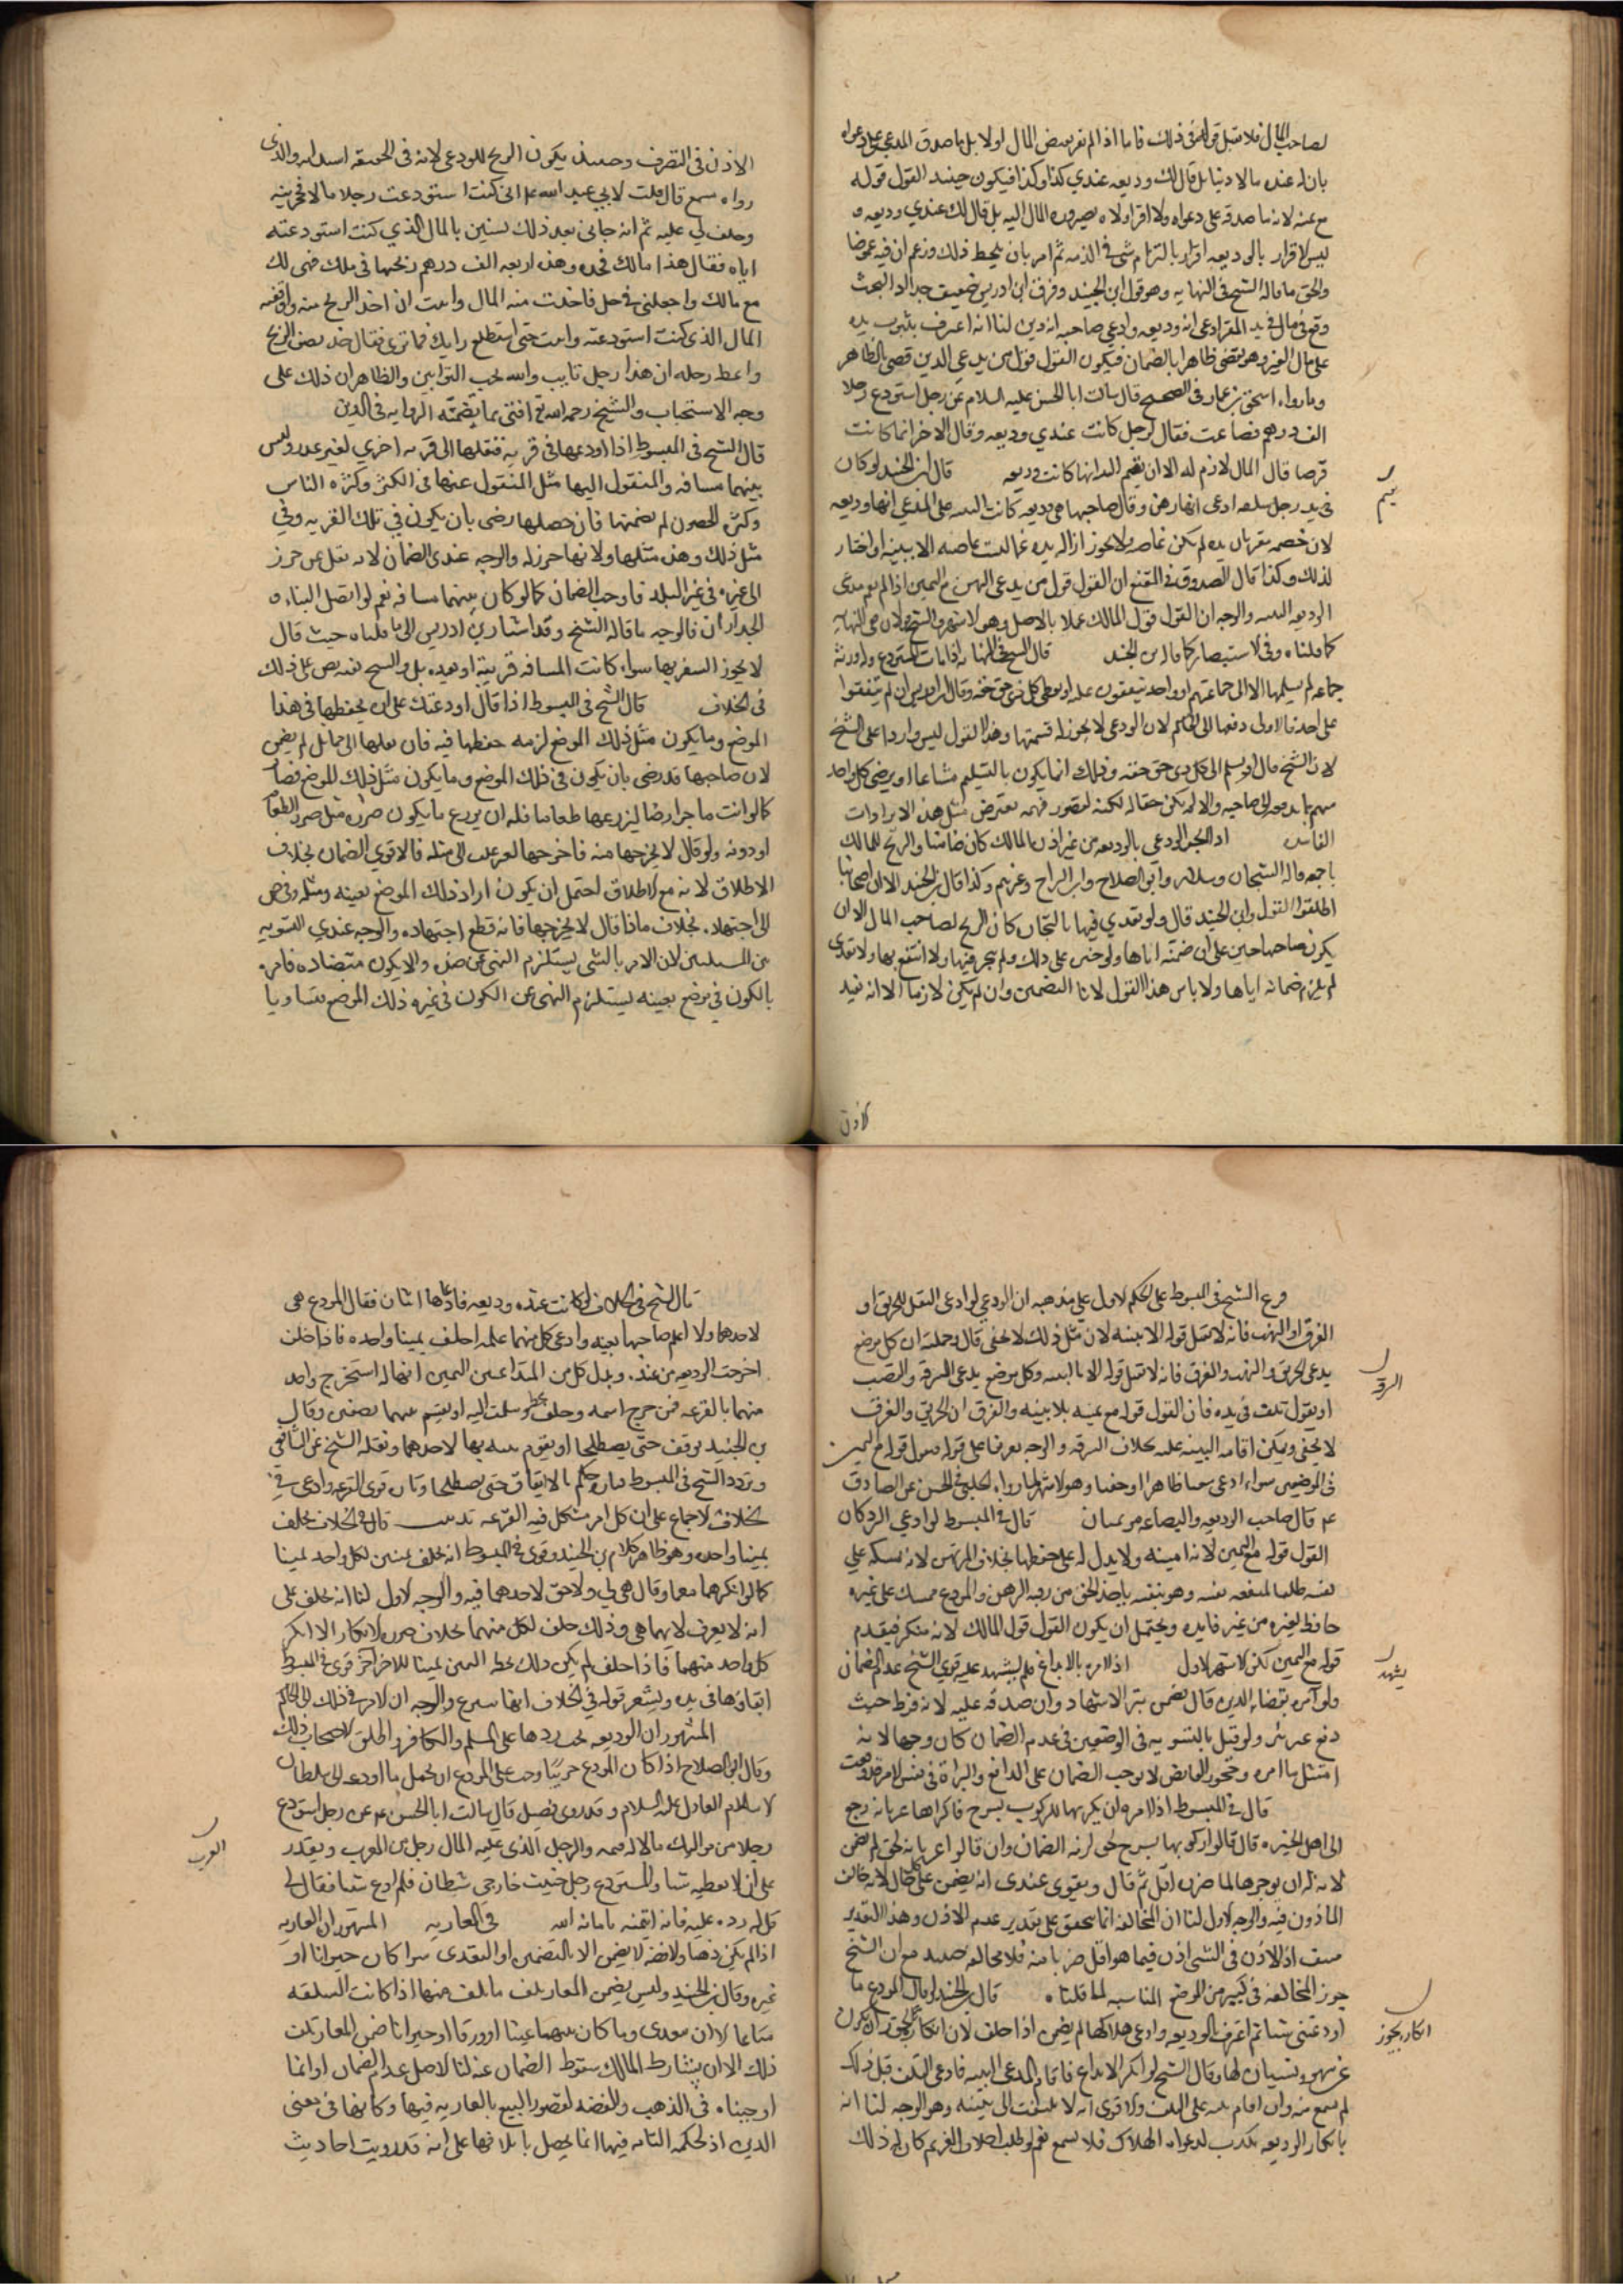 لصاحب المال فلا يقبل قوله في ذلك فاما اذا لم يقر بقبض المال اولا بل ما صدق المدعي على دعواه
بان له عنده مالا دينا بل قال لك وديعه عندي كذا وكذا فيكون حينئذ القول قوله
مع يمينه لانه ما صدقه على دعواه ولا اقر اولا بصيروره المال اليه بل قال لك عندي وديعه و
ليس الاقرار بالوديعه اقرار بالتزام شي في الذمه ثم امر بان يلحظ ذلك وزعم ان فيه غموضا
والحق ما قاله الشيخ في النهايه وهو قول ابن الجنيد وفرق ابن ادريس ضعيف جدا اذ البحث
وقع في مال في يد المقر ادعى انه وديعه وادعى صاحبه انه دين لنا انه اعترف بثبوت يده
على مال الغير وهو يقتضي ظاهرا بالضمان فيكون القول قول من يدعي الدين قضى بالظاهر
وما رواه اسحق بن عمار في الصحيح قال سالت ابا الحسن عليه السلام عن رجل استودع رجلا
الف درهم فضاعت فقال الرجل كانت عندي وديعه وقال الاخر انما كانت
قرضا قال المال لازم له الا ان يقيم البينه انها كانت وديعه قال ابن الجنيد لو كان
في يد رجل سلعه ادعى انها رهن وقال صاحبها هي وديعه كانت البينه على المدعي انها وديعه
لان خصمه مقر بان يده لم يكن غاصبه ولا يجوز ازاله يده الا ببينه او اختار
لذلك وكذا قال الصدوق في المقنع ان القول قول من يدعي الرهن مع اليمين اذا لم يقم مدعي
الوديعه البينه والوجه ان القول قول المالك عملا بالاصل وهو الاشهر والشيخ قولان في النهايه
كما قلناه وفي الاستبصار كما قاله ابن الجنيد قال الشيخ في النهايه اذا مات المستودع وله ورثه
جماعه لم يسلمها الا الى جماعتهم او واحد يتفقون عليه او يعطي كل ذي حق حقه وقال ابن ادريس ان لم يتفقوا
على احد فالاولى دفعها الى الحاكم لان المودع لا يجوز له قسمتها وهذا القول ليس واردا على الشيخ
لان الشيخ قال او يسلم الى كل ذي حق حقه وذلك انما يكون بالتسليم مشاعا او يرضى كل واحد
منهم بما يدفعه الى صاحبه والا لم يكن حقا له لكنه لقصور فهمه يعترض بمثل هذه الايرادات
الفاسده اذا اتجر المودع بالوديعه من غير اذن المالك كان ضامنا والربح للمالك
باجمعه قاله الشيخان وسلار وابو الصلاح وابن البراج وغيرهم وكذا قال ابن الجنيد الا ان اصحابنا
اطلقوا القول وابن الجنيد قال ولو تعدي فيها بالتجاره كان الربح لصاحب المال الا ان
يكون صاحبها على ان ضمنه اياها ولو خير على ذلك ولم يتجر فيها ولا انتفع بها ولا تعدى
لم يلزم ضمانه اياها ولا باس هذا القول لانا التضمين وان لم يكن لازما الا انه يفيد
يقيم
الاذن
الاذن في التصرف وحينئذ يكون الربح للمودع لانه في الحقيقه استدانه والذي
رواه مسمع قال قلت لابي عبد الله ع اني كنت استودعت رجلا مالا فجحدنيه
وحلف لي عليه ثم انه جاني بعد ذلك بسنين بالمال الذي كنت استودعته
اياه فقال هذا مالك فخذه وهذه اربعه الف درهم ربحتها في مالك فهي لك
مع مالك واجعلني في حل فاخذت منه المال وابيت ان اخذ الربح منه واوقفته
المال الذي كنت استودعته وابيت حتى استطلع رايك فما ترى فقال خذ نصف الربح
واعطه رجله ان هذا رجل تايب والله يحب التوابين والظاهر ان ذلك على
وجه الاستحباب والشيخ رحمه الله افتى بما تضمنه الروايه في الدين
قال الشيخ في المبسوط اذا اودعها في قريه فنقلها الى قريه اخري لغير عذر وليس
بينهما مسافه والمنقول اليها مثل المنقول عنها في الكثر وكثره الناس
وكثره الحصون لم يضمنها فان حصلها رضى بان يكون في تلك القريه وفي
مثل ذلك وهذه مثلها ولانها حرز له والوجه عندي الضمان لانه نقل من حرز
الى غيره في غير البلد فاوجب الضمان كما لو كان بينهما مسافه نعم لو اتصل البناء و
الجداران فالوجه ما قاله الشيخ وقد اشار ابن ادريس الى ما قلناه حيث قال
لا يجوز السفر بها سواء كانت المسافه قريبة او بعيده بل والشيخ نفسه نص على ذلك
في الخلاف قال الشيخ في المبسوط اذا قال اودعتك على ان يحفظها في هذا
الموضع وما يكون مثل ذلك الموضع لزمه حفظها فيه فان نقلها الى ما يماثل لم يضمن
لان صاحبها قد رضى بان يكون في ذلك الموضع وما يكون مثل ذلك الموضع فصار
كما لو استاجر ارضا ليزرعها طعاما فله ان يزرع ما يكون ضرره مثل ضرر الطعام
او دونه ولو قال لا يخرجها منه فاخرجها لغير علة الى مثله فالاقوى الضمان بخلاف
الاطلاق لانه مع الاطلاق احتمل ان يكون اراد ذلك الموضع بعينه ومثله وفوض
الى اجتهاده بخلاف ما اذا قال لا يخرجها فانه قطع اجتهاده والوجه عندي التسويه
بين المسئلتين لان الامر بالشي يستلزم النهي عن ضده والا يكون متضاده فامره
بالكون في موضع بعينه يستلزم النهي عن الكون في غيره ذلك الموضع مساويا
فرع الشيخ في المبسوط على الحكم الاول على مذهبه ان المودع لو ادعى النقل للحريق او
الغرق او النهب فانه لا يقبل قوله الا ببينه لان مثل ذلك لا يخفى قال وجملته ان كل موضع
يدعي الحريق والنهب والغرق فانه لا يقبل قوله الا بالبينه وكل موضع يدعي السرقه والغصب
او يقول تلفت في يده فان القول قوله مع يمينه بلا بينه والفرق ان الحريق والغرق
لا يخفى ويمكن اقامه البينه عليه بخلاف السرقه والوجه عندنا قبول قوله مع اليمين
في الموضعين سواء ادعى سببا ظاهرا او خفيا وهو الاشهر لما رواه الحلبي في الحسن عن الصادق
ع قال صاحب الوديعه والبضاعه مؤتمنان قال في المبسوط لو ادعي الرد كان
القول قوله مع اليمين لانه امينه ولا يدل له على حفظها بخلاف المرتهن لانه يمسكه على
نفسه طلبا لمنفعه نفسه وهو ينفعه باخذ الحق من رقبه الرهن والمودع ممسك على غيره
حافظ لغيره من غير فايده ويحتمل ان يكون القول قول المالك لانه منكر فيقدم
قوله مع اليمين لكن الاشهر الاول اذا امره بالايداع فلم يشهد عليه قوى الشيخ عدم الضمان
ولو امره بقضاء الدين قال يضمن بترك الاشهاد وان صدقه عليه لانه فرط حيث
دفع غير مبرئ ولو قيل بالتسويه في الموضعين في عدم الضمان كان وجها لانه
امتثل ما امره وجحود القابض لا يوجب الضمان على الدافع والبراة في نفس الامر قد وقعت
قال في المبسوط اذا امره ان يكريها للركوب بسرج فاكراها عريانه رجع
الى اهل الخبره قال فان قالوا ركوبها بسرج اخف لزمه الضمان وان قالوا عريانه اخف لم يضمن
لانه له ان يوجرها لما ضرره اقل ثم قال ويقوى عندي انه يضمن على كل حال لانه خالف
الماذون فيه والوجه الاول لنا ان المخالفه انما تحقق على تقدير عدم الاذن وهذا التقدير
منتف اذ الاذن في الشي اذن فيما هو اقل ضررا منه فلا مخالفه حينئذ مع ان الشيخ
جوز المخالفه في كثير من المواضع المناسبه لما قلناه قال ابن الجنيد لو قال المودع ما
اودعتني شيا ثم اعترف بالوديعه وادعى هلاكها لم يضمن اذا حلف لان انكاره يجوز ان يكون
عن سهو ونسيان لها وقال الشيخ لو انكر الايداع فاقام المدعي البينه فادعى التلف قبل ذلك
لم يسمع منه وان اقام بينه على التلف والاقوى انه لا يلتفت الى بينته وهو الوجه لنا انه
بانكار الوديعه مكذب لدعواه الهلاك فلا يسمع نعم لو طلب احلاف الغريم كان له ذلك
السرقه
يشهد
انكاره يجوز
قال الشيخ في الخلاف لو كانت عنده وديعه فادعاها اثنان فقال المودع هي
لاحدهما ولا اعلم صاحبها بعينه وادعى كل منهما علمه احلف يمينا واحده فاذا حلف
اخرجت الوديعه من عنده وبذل كل من المتداعيين اليمين انها له استخرج واحد
منهما بالقرعه فمن خرج اسمه وحلف سلمت اليه او يقسم بينهما نصفين وقال
بن الجنيد يوقف حتى يصطلحا او يقوم بينه بها لاحدهما ونقله الشيخ عن الشافعي
وتردد الشيخ في المبسوط فتارة حكم بالايقاف حتى يصطلحا وتارة قوى القرعه وادعى في
الخلاف الاجماع على ان كل امر مشكل فيه القرعه تذنيب قال في الخلاف يحلف
يمينا واحده وهو ظاهر كلام بن الجنيد وقوى في المبسوط انه يحلف يمينين لكل واحد يمينا
كما لو انكرهما معا وقال هي لي ولا حق لاحدهما فيه والوجه الاول لنا انه يحلف على
انه لا يعرف لايهما هي وذلك حلف لكل منهما بخلاف صوره الانكار اذا انكر
كل واحد منهما فاذا حلف لم يكن ذلك اليمين يمينا للاخر اخر قوى في المبسوط
ابقاءها في يده ويشعر قوله في الخلاف انها تنتزع والوجه ان الامر في ذلك الى الحاكم
المشهور ان الوديعه يجب ردها على المسلم والكافر واطلق الاصحاب ذلك
وقال ابو الصلاح اذا كان المودع حربيا وجب على المودع ان يحمل ما اودعه الى سلطان
الاسلام العادل عليه السلام وقد روى فضيل قال سالت ابا الحسن ع عن رجل استودع
رجلا من مواليك مالا له قيمه والرجل الذي عليه المال رجل من العرب ويقدر
على ان لا يعطيه شيا والمستودع رجل خبيث خارجي شيطان فلم ادع شيا فقال لي
قل له رده عليه فانه ايتمنه بامانه الله في العاريه المشهور ان العاريه
اذا لم يكن ذهبا ولا فضه لا يضمن الا بالتضمين او التعدى سوا كان حيوانا او
غيره وقال بن الجنيد وليس يضمن المعار تلف ما تلف منها اذا كانت السلعه
متاعا الا ان يتعدى وما كان منها عينا او ورقا او حيوانا ضمن المعار تلف
ذلك الا ان يشارط المالك سقوط الضمان عنه لنا الاصل عدم الضمان وانما
اوجبناه في الذهب والفضه لقصور البيع بالعاريه فيها وكانها في معنى
الدين اذ الحكمه التامه فيها انما يحصل باتلافها على انه قد رويت احاديث
العرب